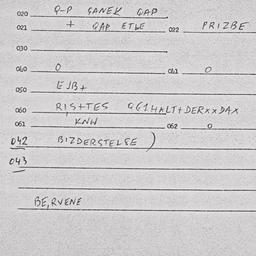 020 Q-P GANEK GAP
021 + GAP ETLE 022 PRIZBE
030
040 0 041 0
050 EJB+
060 RISTTES GG1HALT+DERXXDAX
061 KNW 062 0
042 BIZDERSTELSE )
043
BE,RVENE